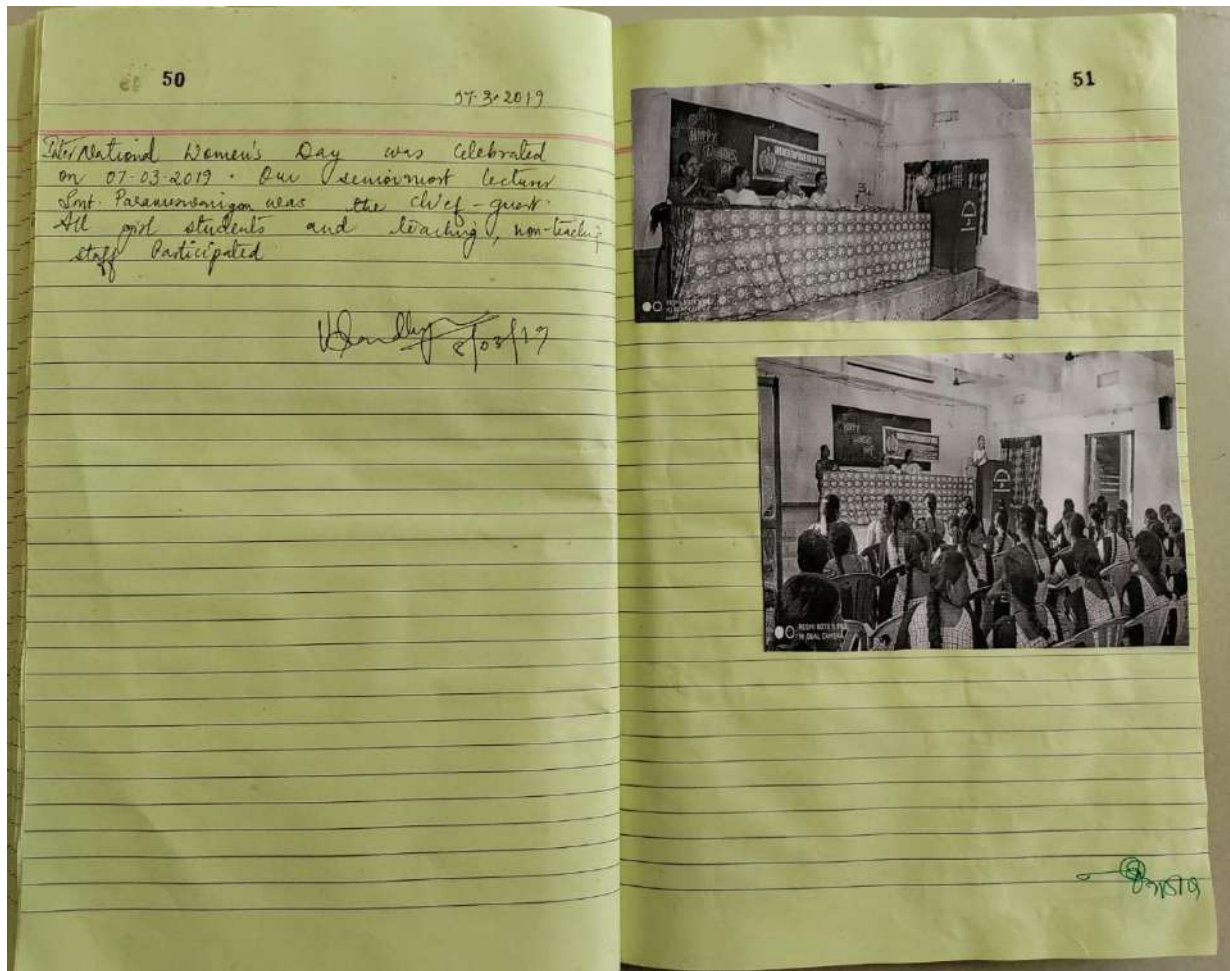 50
07-3-2019
InterNational Women's Day was Celebrated
on 07-03-2019. Our seniormost lecturer
Smt. was the chief-guest.
All girl students and teaching, non-teaching
staff Participated
8/03/19
51
HAPPY
WOMEN'S
REDMI NOTE 5 PRO
MI DUAL CAMERA